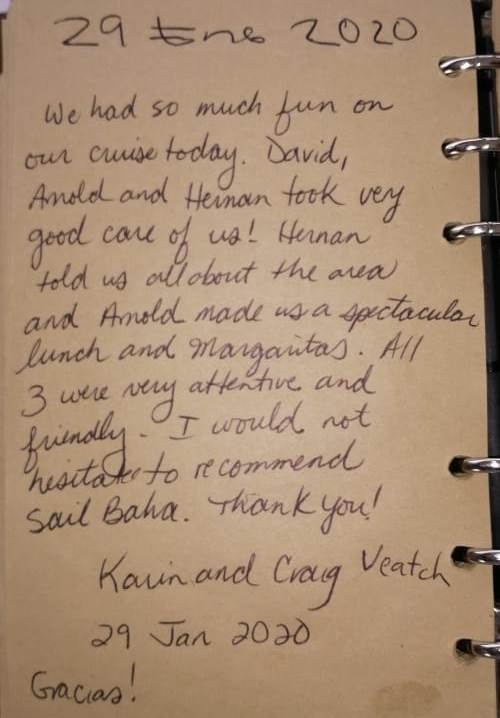 29 Ene 2020
We had so much fun on
our cruise today. David,
Arnold and Hernan took very
good care of us! Hernan
told us all about the area
and Arnold made us a spectacular
lunch and Margaritas. All
3 were very attentive and
friendly. I would not
hesitate to recommend
Sail Baha. Thank you!
Karin and Craig Veatch
29 Jan 2020
Gracias!